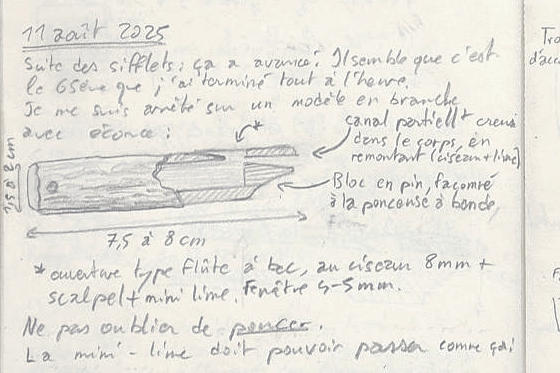 11 août 2025
Suite des sifflets : ça a avancé ! Il semble que c'est
le 65ème que j'ai terminé tout à l'heure.
Je me suis arrêté sur un modèle en branche
avec écorce :
*
canal partiellt creusé
dans le corps, en
remontant (ciseau + lime)
Bloc en pin, façonné
à la ponceuse à bande,
1,5 à 2 cm
7,5 à 8 cm
* ouverture type flûte à bec, au ciseau 8mm +
scalpel + mini lime. Fenêtre 4-5mm.
Ne pas oublier de poncer.
La mini-lime doit pouvoir passer comme ça :
Tro
d'acc